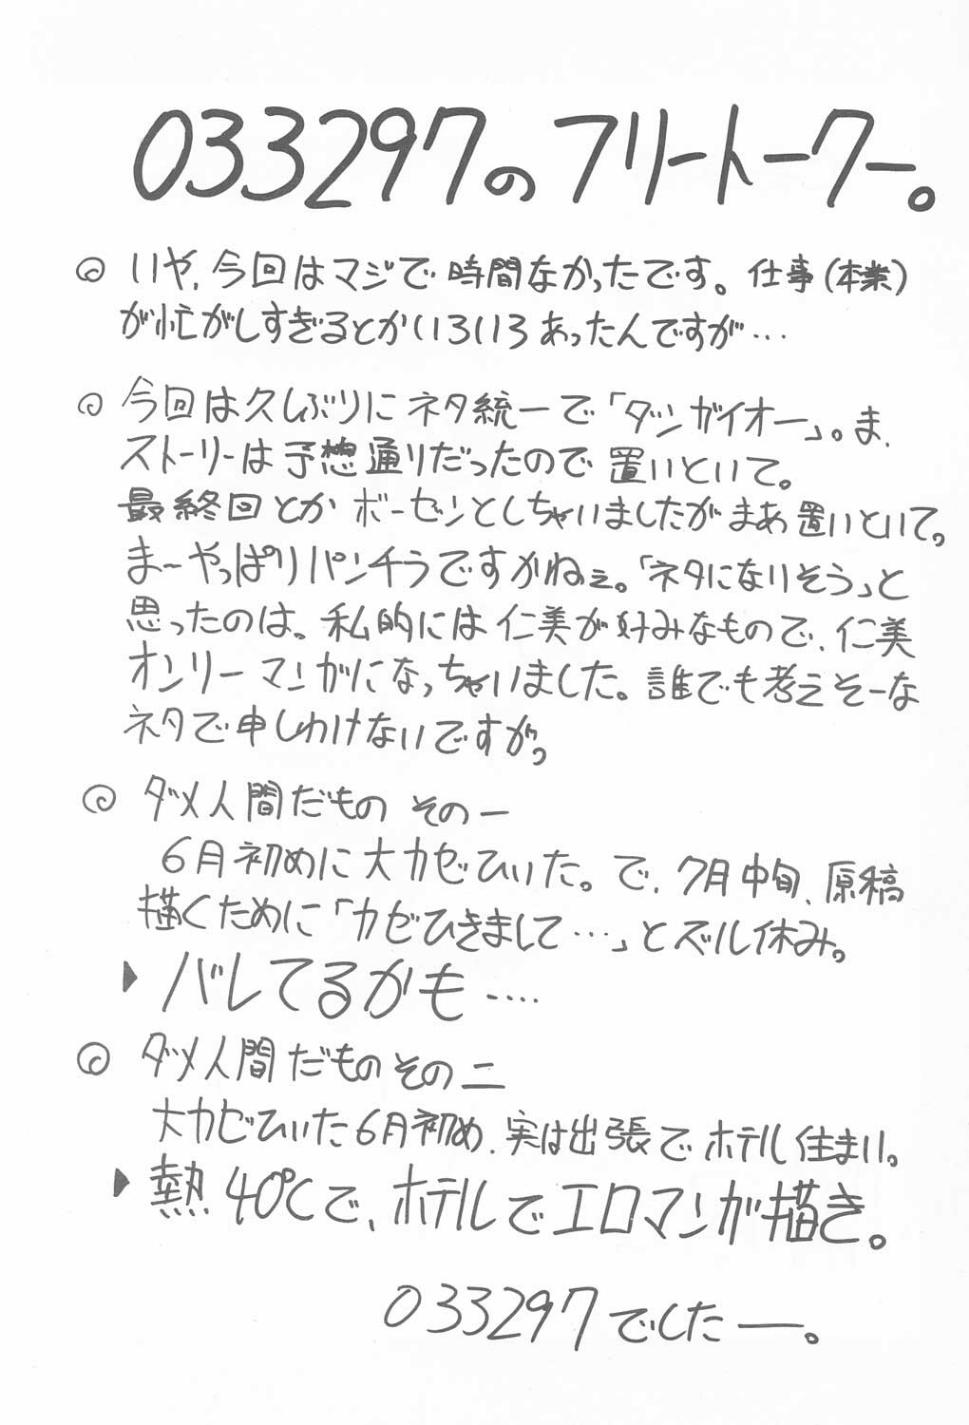 033297のフリートーク一。
◎ いや、今回はマジで時間なかったです。仕事(本業)
が忙がしすぎるとかいろいろあったんですが…
◎ 今回は久しぶりにネタ統一で「ダンガイオー」。ま、
ストーリーは予想通りだったので置いといて。
最終回とかボーゼンとしちゃいましたがまあ置いといて。
まーやっぱりパンチラですかねぇ。「ネタになりそう」と
思ったのは。私的には仁美が好みなもので、仁美
オンリーマンガになっちゃいました。誰でも考えそーな
ネタで申しわけないですが。
◎ ダメ人間だもの その一
6月初めに大カゼひいた。で、7月中旬、原稿
描くために「カゼひきまして…」とズル休み。
▶ バレてるかも....
◎ ダメ人間だもの その二
大カゼひいた6月初め、実は出張でホテル住まい。
▶ 熱40℃で、ホテルでエロマンガ描き。
033297でしたー。